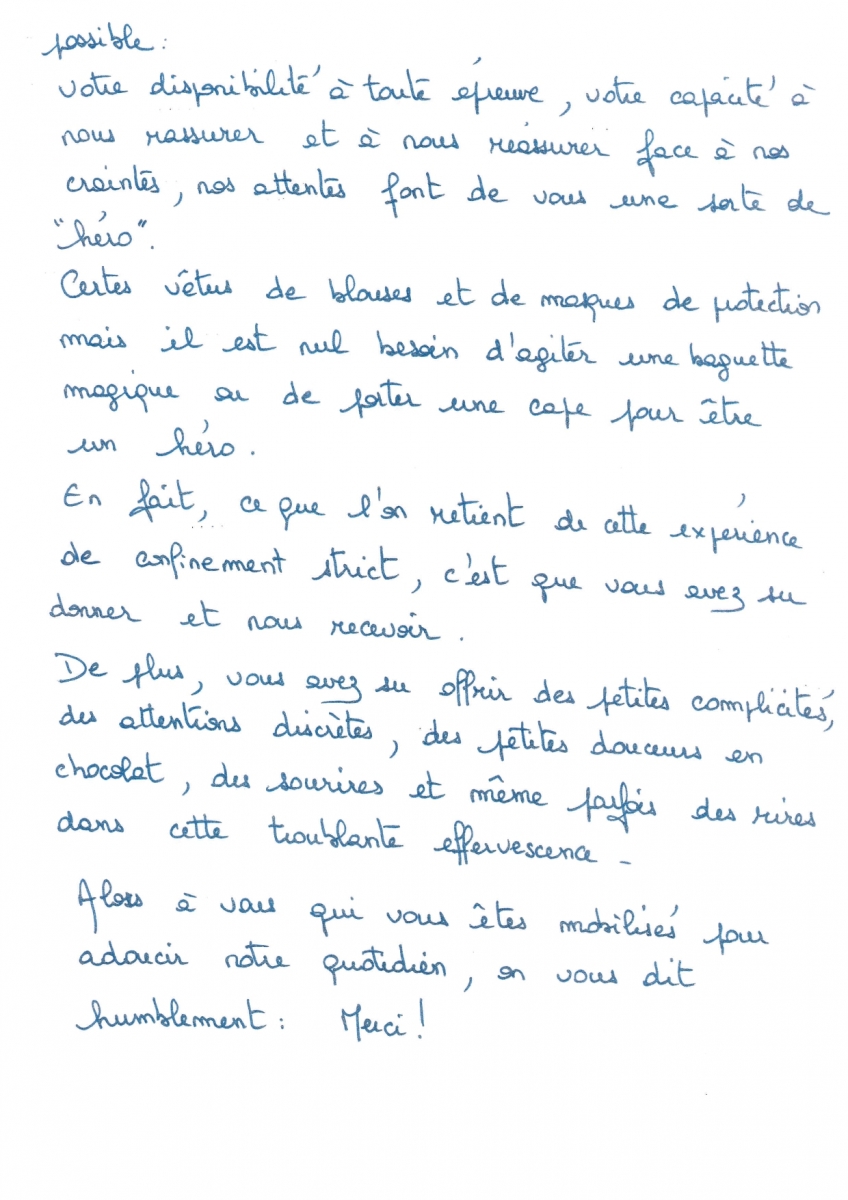 possible :
votre disponibilité à toute épreuve, votre capacité à
nous rassurer et à nous réassurer face à nos
craintes, nos attentes font de vous une sorte de
"héro".
Certes vêtus de blouses et de masques de protection
mais il est nul besoin d'agiter une baguette
magique ou de porter une cape pour être
un héro.
En fait, ce que l'on retient de cette expérience
de confinement strict, c'est que vous avez su
donner et nous recevoir.
De plus, vous avez su offrir des petites complicités,
des attentions discrètes, des petites douceurs en
chocolat, des sourires et même parfois des rires
dans cette troublante effervescence -
Alors à vous qui vous êtes mobilisés pour
adoucir notre quotidien, on vous dit
humblement : Merci !